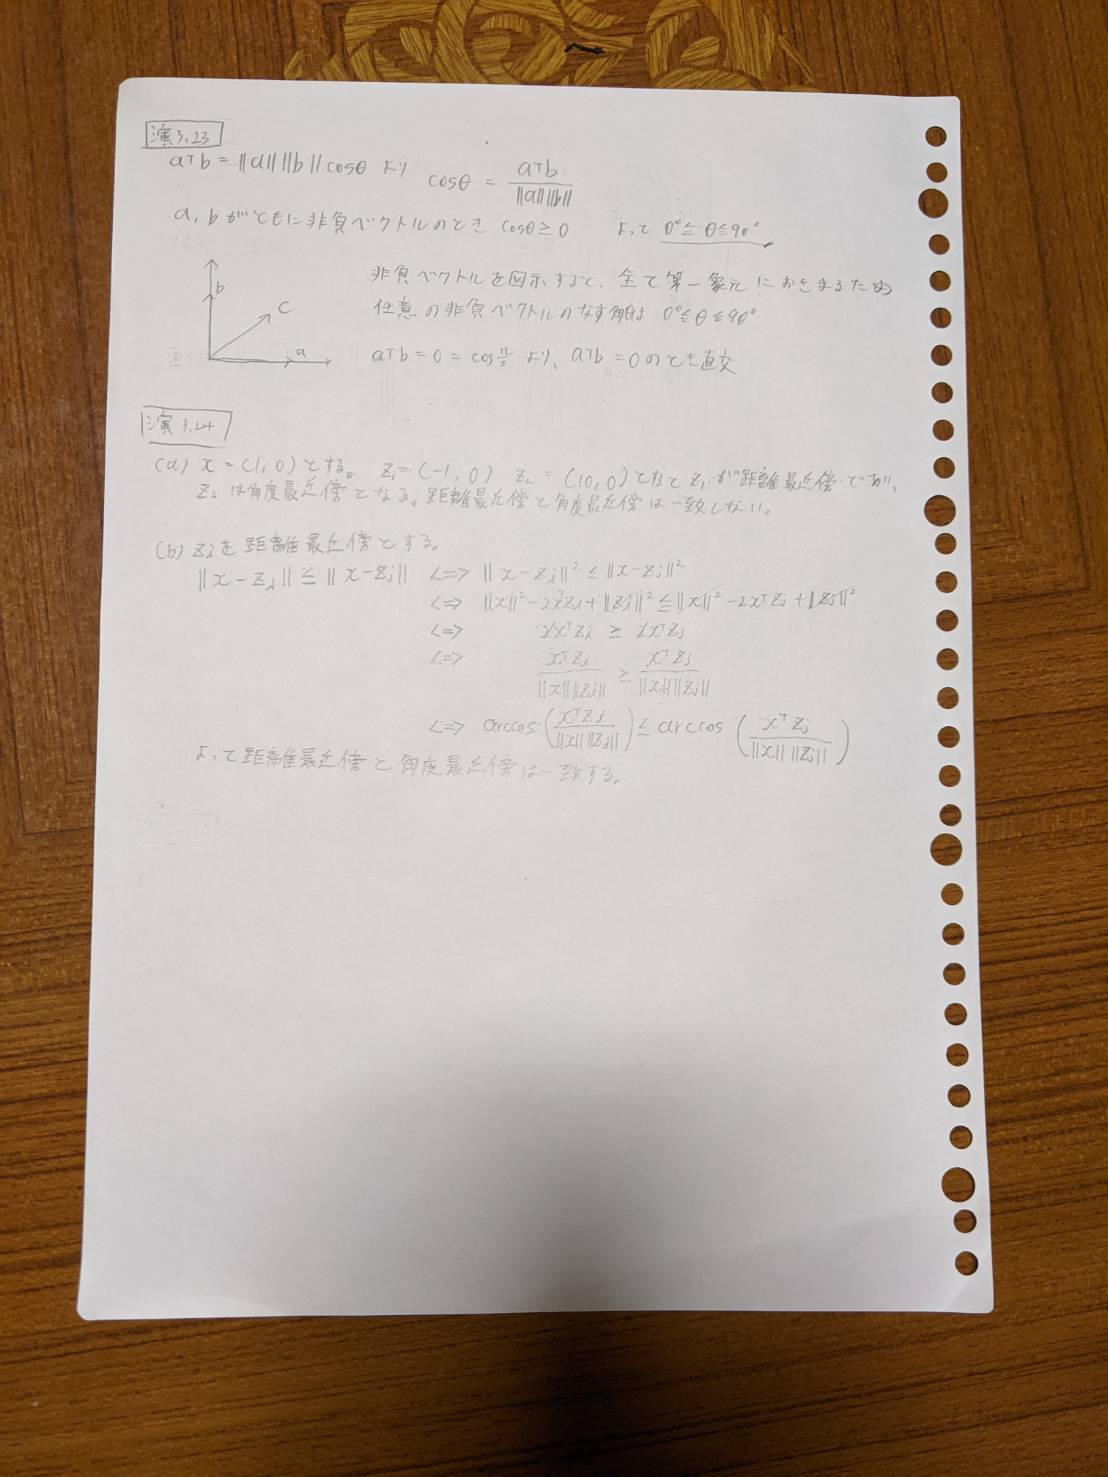 演3.23
a⊤b = ||a|| ||b|| cosθ より cosθ = a⊤b / ||a|| ||b||
a, b がともに非負ベクトルのとき cosθ ≥ 0 よって 0° ≦ θ ≦ 90°
非負ベクトルを図示すると、全て第一象元におさまるため
任意の非負ベクトルのなす角θは 0° ≦ θ ≦ 90°
b
c
a
a⊤b = 0 = cos π/2 より、a⊤b = 0 のとき直交
演 3.24
(a) x = (1, 0) とする。 z₁ = (-1, 0) z₂ = (10, 0) となと z₁ が距離最近傍であり、
z₂ は角度最近傍となる。距離最近傍と角度最近傍は一致しない。
(b) zᵢを距離最近傍とする。
||x - zᵢ|| ≤ ||x - zⱼ|| <=> ||x - zᵢ||² ≤ ||x - zⱼ||²
<=> ||x||² - 2x⊤zᵢ + ||zᵢ||² ≤ ||x||² - 2x⊤zⱼ + ||zⱼ||²
<=> 2x⊤zᵢ ≥ 2x⊤zⱼ
<=> x⊤zᵢ / ||x|| ||zᵢ|| ≥ x⊤zⱼ / ||x|| ||zⱼ||
<=> arccos (x⊤zᵢ / ||x|| ||zᵢ||) ≤ arccos (x⊤zⱼ / ||x|| ||zⱼ||)
よって距離最近傍と角度最近傍は一致する。